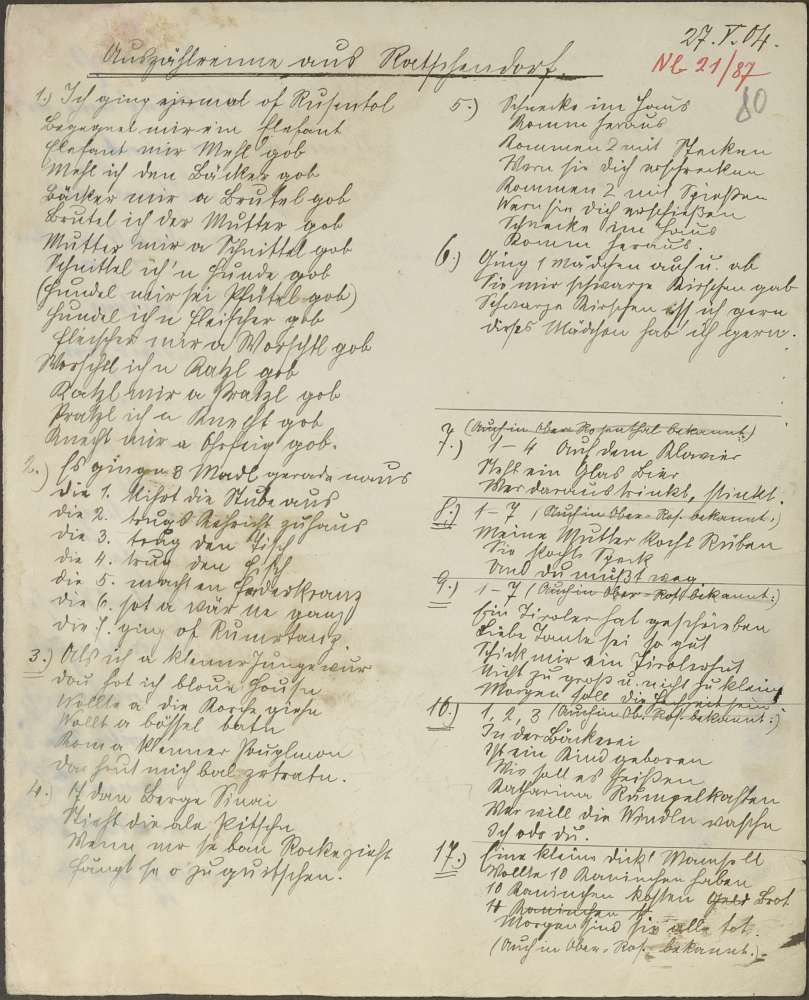 27. V. 04.
Nb 21/87
80
Auszählreime aus Ratschendorf
1.) Ich ging ejermal of Rusentol
Begegnet mir ein Elefant
Elefant mir Mehl gob
Mehl ich den Bäcker gob
Bäcker mir a Brutel gob
Brutel ich der Mutter gob
Mutter mir a Schnittel gob
Schnittel ich'n Hunde gob
(Hundel mir sei Pfütel gob)
Hundel ich'n Fleischer gob
Fleischer mir a Worschtl gob
Worschtl ich n Katzl gob
Katzl mir a Pratzl gob
Pratzl ich n Knecht gob
Knecht mir a Ohrfeig gob.
2.) Es gingen 8 Madl gerade naus
die 1. kihrt die Stube aus
die 2. trugs Kehricht zuhaus
die 3. trug den Tisch
die 4. trug den Fisch
die 5. macht en Federkranz
die 6. sot a wär ne ganz
die 7. ging of Rumrtanz.
3.) Als ich a klenner Junge wur
dou hot ich bloue Housn
Wollte a die Korche giehn
Wollt a bössel batn
Kom a klenner
dar hout mich bale zrtratn.
4. Uf dan Berge Sinai
Stieht die ale Pitschn
Wenn mr se ban Rocke zieht
Fängt se o zu quitschen.
5.) Schnecke im Haus
Komm heraus
Kommen 2 mit Stecken
Wern sie dich erschrecken
Kommen 2 mit Spießen
Wern sie dich erschießen
Schnecke im Haus
Komm heraus.
6.) Ging 1 Mädchen auf u. ab
Sie mir schwarze Kirschen gab
Schwarze Kirschen ess ich gern
dieses Mädchen hab ich gern.
(Auch in Ober Rosenthal bekannt.)
7.) 1–4 Auf dem Klavier
Steht ein Glas Bier
Wer daraus trinkt, stinkt.
8.) 1–7 (Auch in Ober-Ros. bekannt.)
Meine Mutter kocht Rüben
Sie kocht Speck
Und du mußt weg.
9.) 1–7 (Auch in Ober-Ros. bekannt.)
Ein Tiroler hat geschrieben
Liebe Tante sei so gut
Schick mir ein Tirolerhut
Nicht zu groß u. nicht zu klein
Morgen soll die Hochzeit sein.
10.) 1, 2, 3 (Auch in Ob. Ros. bekannt.)
In der Bäckerei
Ist ein Kind geboren
Wie soll es heißen
Katharina Rumpelkasten
Wer will die Windln waschn
Ich odr du.
17.) Eine kleine dick' Mamsell
Wollte 10 Kaninchen haben
10 Kaninchen kosten Geld Brot
11 Kaninchen 11
Morgen sind sie alle tot.
(Auch in Ober-Ros. bekannt.)